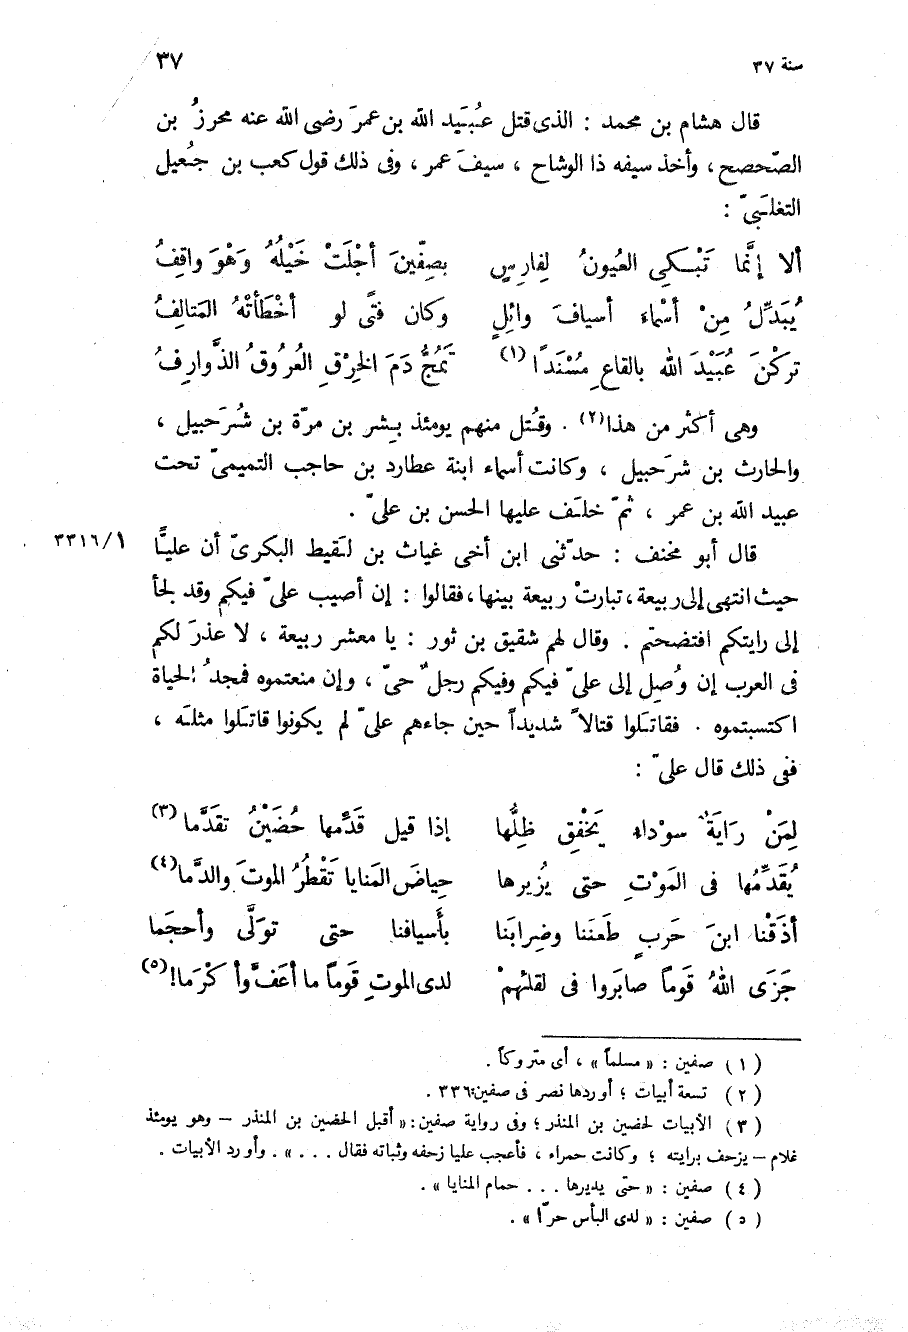 سنة ٣٧
٣٧
قال هشام بن محمد : الذى قتل عُبَيد الله بن عمرَ رضى الله عنه محرزُ بن
الصّحصح ، وأخذ سيفه ذا الوشاح ، سيفَ عمر ، وفى ذلك قول كعب بن جُعيل
التغلَبىّ :
ألا إنَّما تَبْكِى العُيونُ لِفارِسٍ بصِفّينَ أجْلَتْ خَيْلُهُ وَهْوَ واقِفُ
يُبَدِّلُ مِنْ أسْماءَ أسيافَ وائِلٍ وكان فتًى لو أخْطَأتْهُ المَتالِفُ
تركْنَ عُبَيْدَ الله بالقاعِ مُسْنَدًا(١) تَمُجُّ دَمَ الخِرْقِ العُروقُ الذَّوارِفُ
وهى أكثر من هذا(٢) . وقُتل منهم يومئذ بِشر بن مرّة بن شُرَحبيل ،
والحارث بن شرَحبيل ، وكانت أسماء ابنة عطارد بن حاجب التميمىّ تحت
عبيد الله بن عمر ، ثمّ خلَف عليها الحسن بن علىّ .
قال أبو مخنف : حدّثنى ابن أخى غياث بن لَقيط البكرىّ أن عليًّا ٣٣١٦/١
حيث انتهى إلى ربيعة ، تبارتْ ربيعة بينها ، فقالوا : إن أصيب علىّ فيكم وقد لجأ
إلى رايتكم افتضحتم . وقال لهم شقيق بن ثور : يا معشر ربيعة ، لا عذرَ لكم
فى العرب إن وُصِل إلى علىّ فيكم وفيكم رجلٌ حىّ ، وإن منعتموه فمجدُ الحياة
اكتسبتموه . فقاتَلوا قتالاً شديداً حين جاءهم علىّ لم يكونوا قاتَلوا مثلَه ،
ففى ذلك قال علىّ :
لِمَنْ رَايَةٌ سوْداءُ يَخْفِق ظِلُّها إذا قيل قَدِّمها حُضَيْنُ تقدَّما(٣)
يُقَدِّمُها فى المَوْتِ حتى يُزيرها حِياضَ المَنايا تَقْطُرُ الموتَ والدَّما(٤)
أذَقْنا ابنَ حَربٍ طَعنَنا وضِرابَنا بأَسيافنا حتى توَلَّى وأحجَما
جَزَى اللهُ قَوماً صابَروا فى لقائهِمْ لدى الموتِ قَوماً ما أعَفَّ وأكْرَما!(٥)
( ١ ) صفين : « مسلماً » ، أى متروكاً .
( ٢ ) تسعة أبيات ؛ أوردها نصر فى صفين: ٣٣٦ .
( ٣ ) الأبيات لحضين بن المنذر ؛ وفى رواية صفين : « أقبل الحضين بن المنذر – وهو يومئذ
غلام – يزحف برايته ؛ وكانت حمراء ، فأعجب عليا زحفه وثباته فقال . . . » . وأورد الأبيات .
( ٤ ) صفين : « حتى يديرها . . . حمام المنايا » .
( ٥ ) صفين : « لدى البأس حرًّا » .